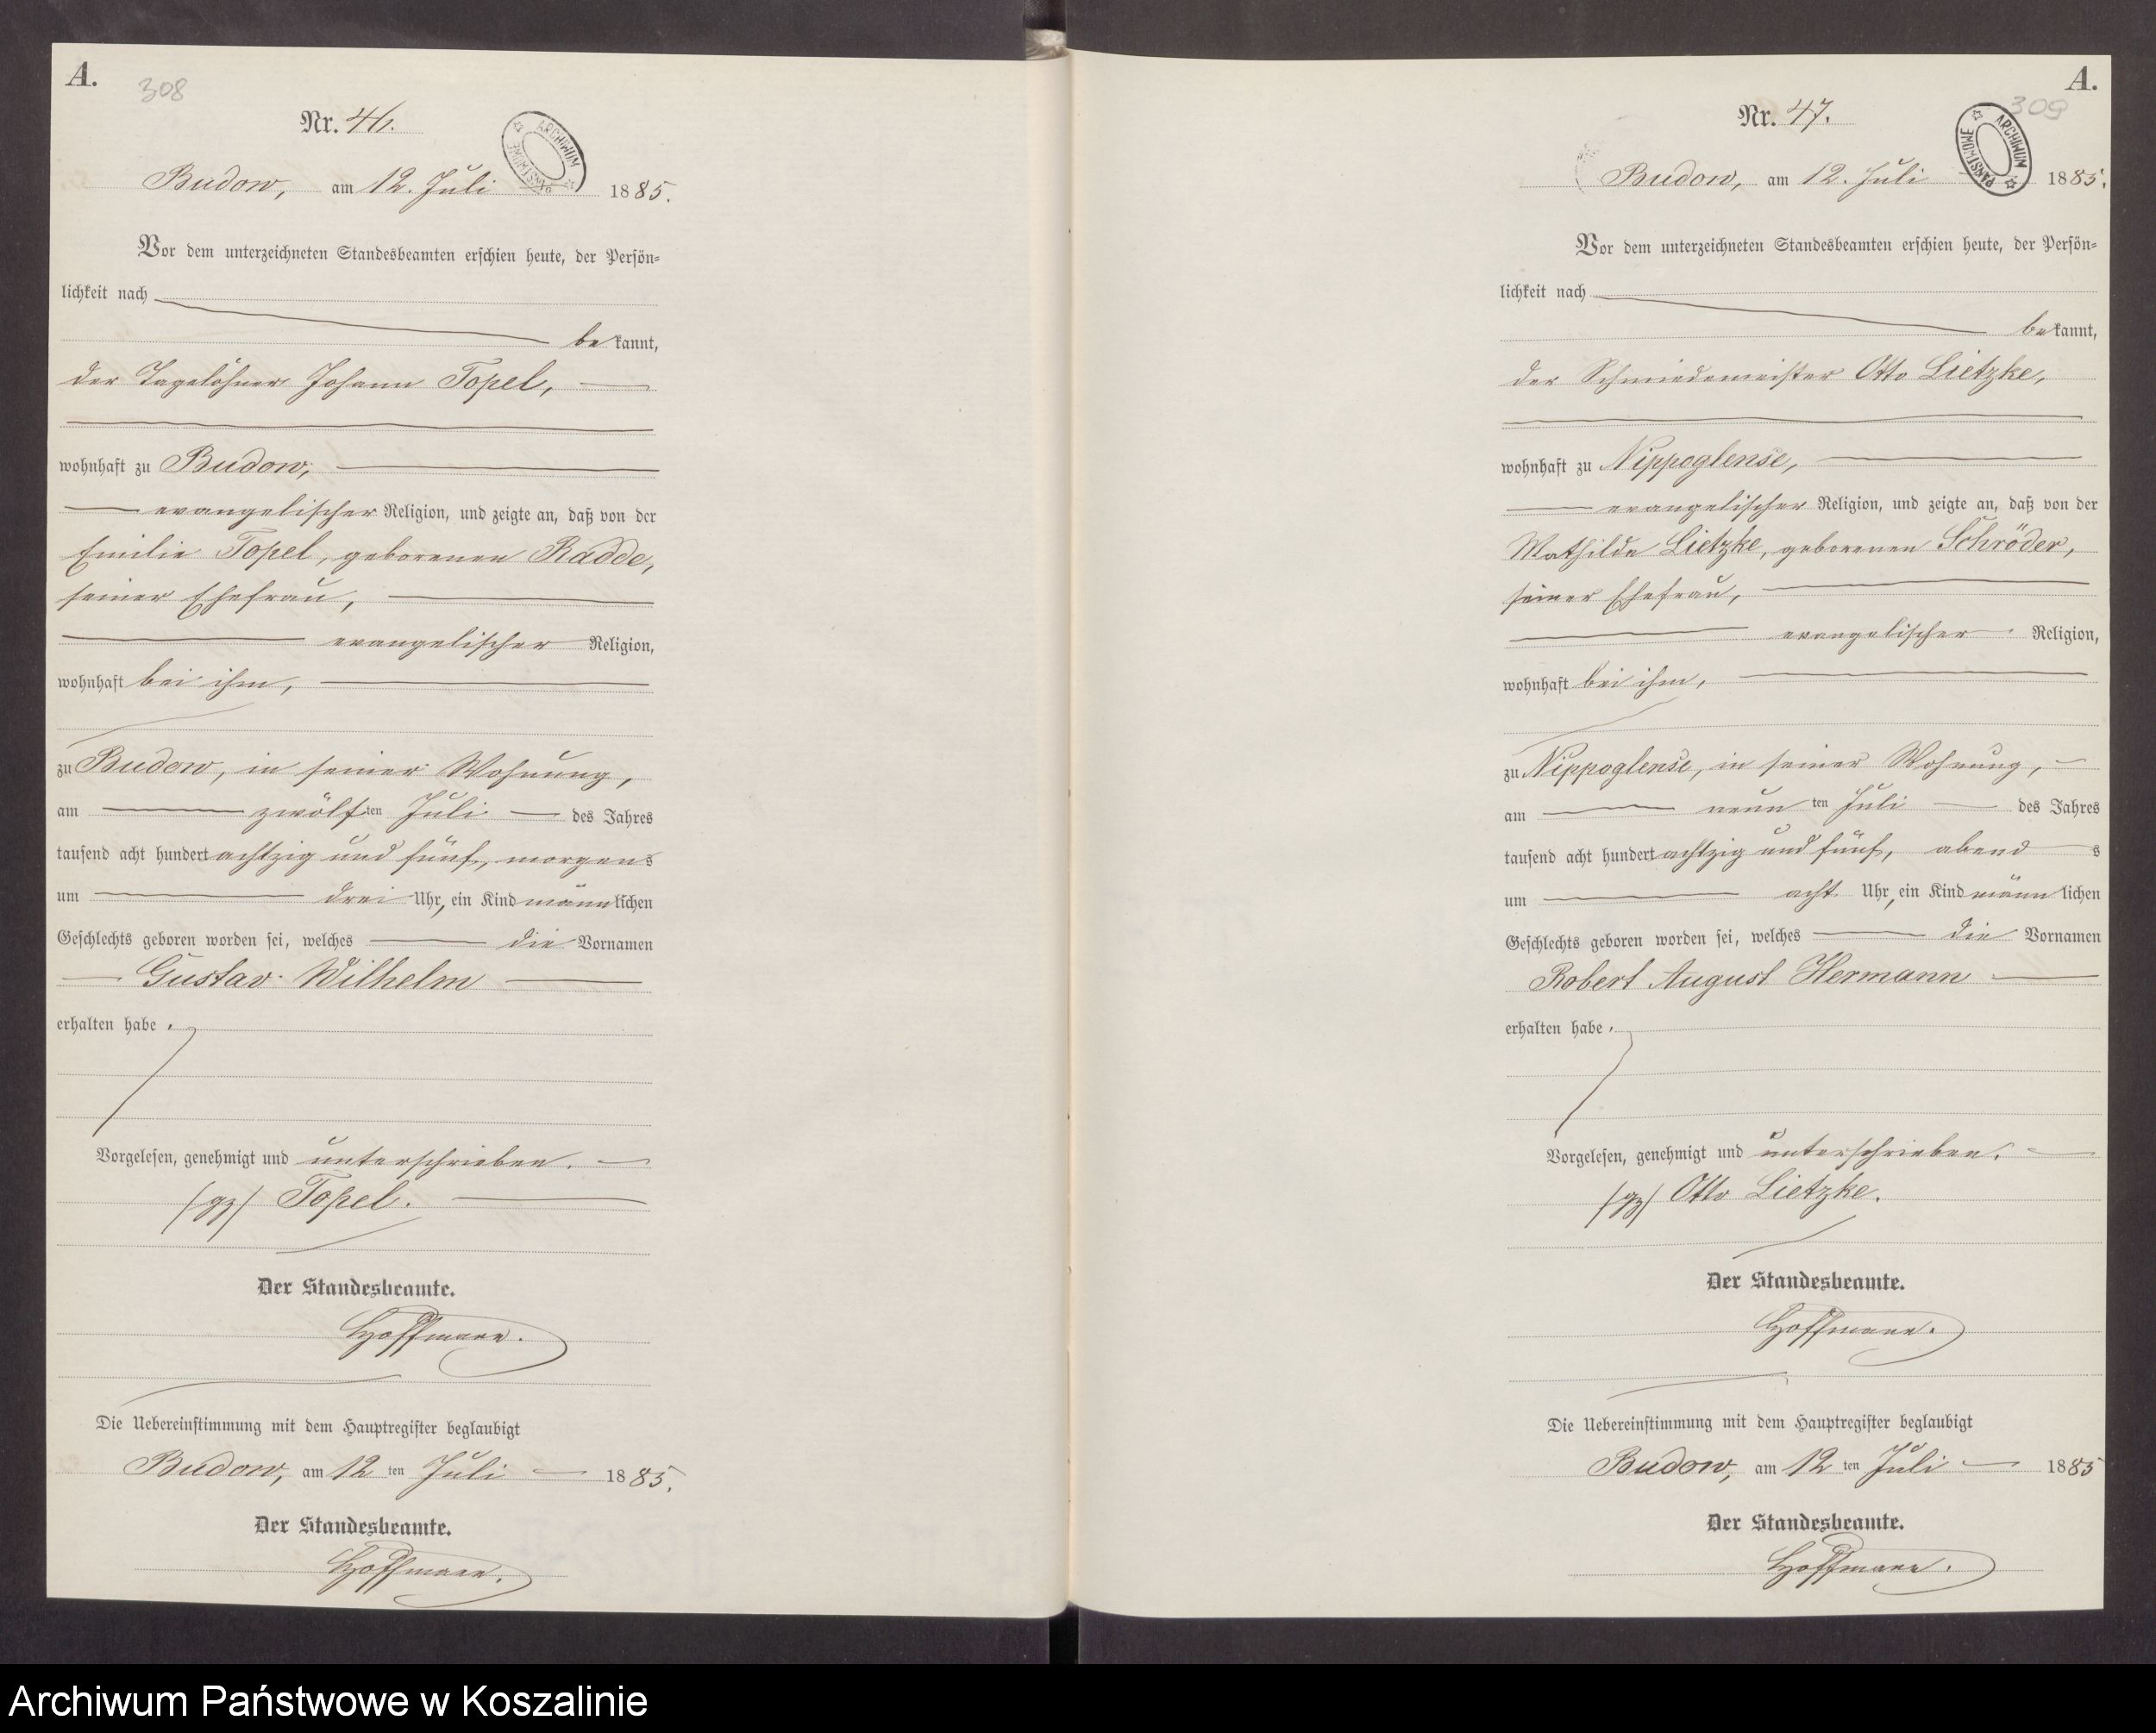 A.
308
Nr. 46.
ARCHIWUM PAŃSTWOWE
Budow, am 12. Juli 1885.
Vor dem unterzeichneten Standesbeamten erschien heute, der Persön=
lichkeit nach
bekannt,
der Tagelöhner Johann Topel,
wohnhaft zu Budow,
evangelischer Religion, und zeigte an, daß von der
Emilie Topel, geborenen Radde,
seiner Ehefrau,
evangelischer Religion,
wohnhaft bei ihm,
zu Budow, in seiner Wohnung,
am zwölften Juli des Jahres
tausend acht hundert achtzig und fünf, morgens
um drei Uhr, ein Kind männlichen
Geschlechts geboren worden sei, welches die Vornamen
Gustav Wilhelm
erhalten habe.
Vorgelesen, genehmigt und unterschrieben.
(gz) Topel.
Der Standesbeamte.
Hoffmann.
Die Uebereinstimmung mit dem Hauptregister beglaubigt
Budow, am 12ten Juli 1885.
Der Standesbeamte.
Hoffmann.
A.
309
Nr. 47.
ARCHIWUM PAŃSTWOWE
Budow, am 12. Juli 1885.
Vor dem unterzeichneten Standesbeamten erschien heute, der Persön=
lichkeit nach
bekannt,
der Schmiedemeister Otto Lietzke,
wohnhaft zu Nippoglense,
evangelischer Religion, und zeigte an, daß von der
Mathilde Lietzke, geborenen Schröder,
seiner Ehefrau,
evangelischer Religion,
wohnhaft bei ihm,
zu Nippoglense, in seiner Wohnung,
am neunten Juli des Jahres
tausend acht hundert achtzig und fünf, abends
um acht Uhr, ein Kind männlichen
Geschlechts geboren worden sei, welches die Vornamen
Robert August Hermann
erhalten habe.
Vorgelesen, genehmigt und unterschrieben.
(gz) Otto Lietzke.
Der Standesbeamte.
Hoffmann.
Die Uebereinstimmung mit dem Hauptregister beglaubigt
Budow, am 12ten Juli 1885
Der Standesbeamte.
Hoffmann.
Archiwum Państwowe w Koszalinie